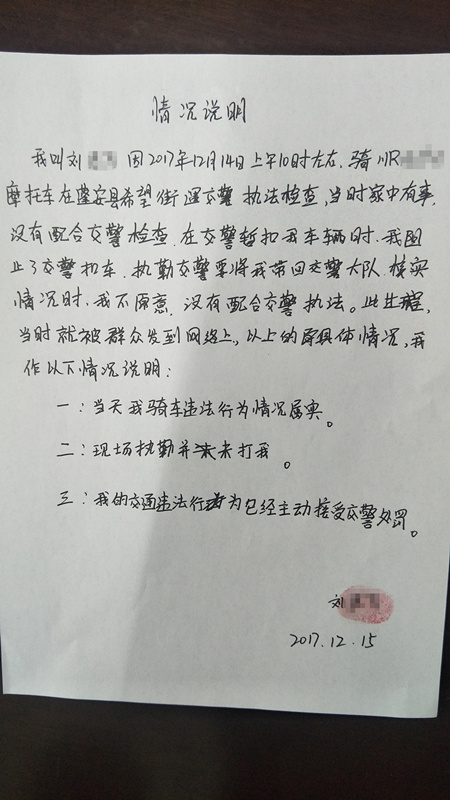 情况说明
我叫刘 因2017年12月14日上午10时左右.骑川R
摩托车在蓬安县希望街逢交警执法检查,当时家中有事,
没有配合交警检查.在交警暂扣我车辆时.我阻
止了交警扣车.执勤交警要将我带回交警大队.核实
情况时.我不愿意.没有配合交警执法。此过程,
当时就被群众发到网络上,以上的具体情况,我
作以下情况说明:
一:当天我骑车违法行为情况属实。
二:现场执勤并未打我。
三:我的交通违法行为已经主动接受交警处罚。
刘
2017.12.15